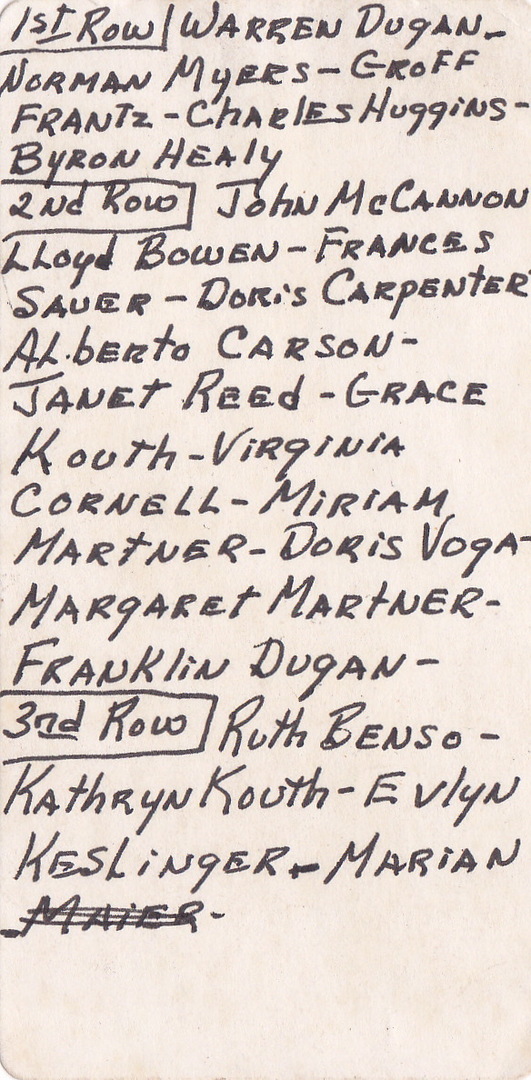 1st Row WARREN DUGAN-
NORMAN MYERS - GROFF
FRANTZ - CharlEs HuggiNS -
BYRON HEALY
2nd Row John McCANNON
LLoyd BOWEN - FRANCES
SAUER - DORis CARPENTER
ALberto CARSON -
JANET REEd - GRACE
Kouth - VIRGINIA
CORNELL - MIRIAM
MARTNER - DORIS VOGA-
MARGARET MARTNER -
FRANKlin DUGAN -
3rd Row Ruth BENSO -
KAthRYN Kouth - EVlyN
KESLINGER - MARIAN
MAIER -